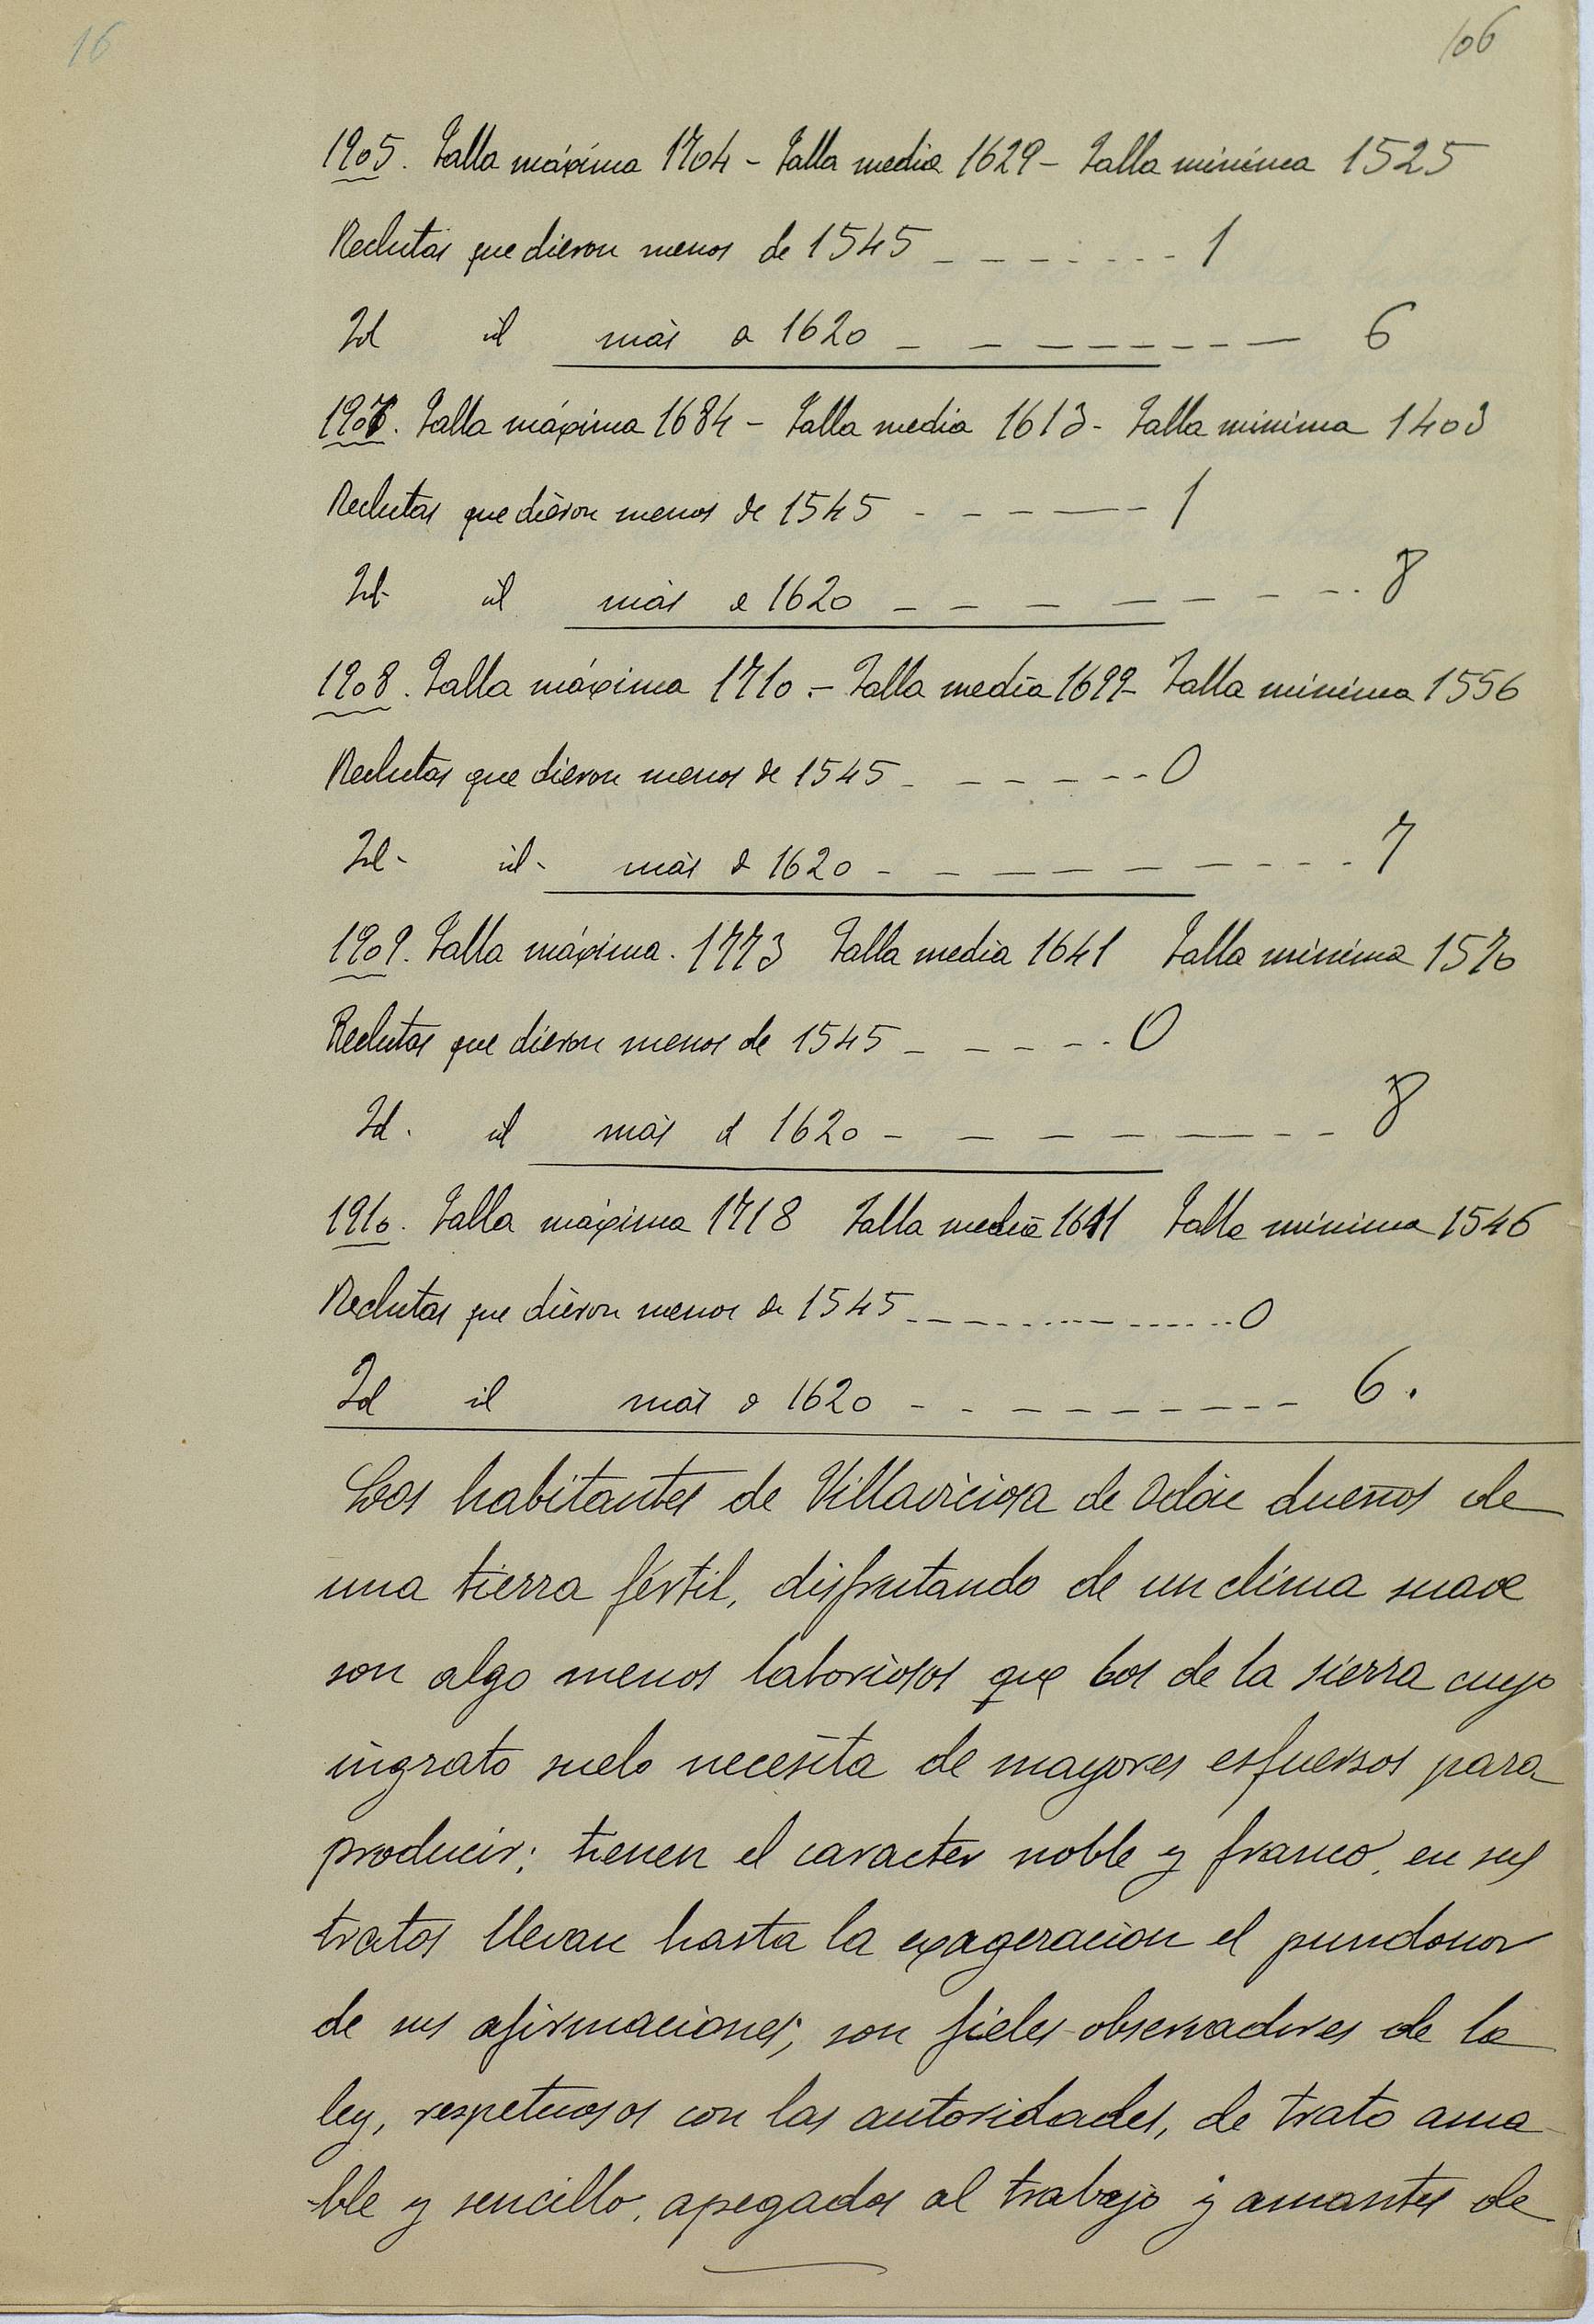 16
106
1905. Talla máxima 1704 - Talla media 1629 - Talla minima 1525
Reclutas que dieron menos de 1545 - - - - - - - - 1
Id id más de 1620 - - - - - - - - - 6
Talla máxima 1684 - Talla media 1613 - Talla minima 1403
Reclutas que dieron menos de 1545 - - - - - - 1
Id id más de 1620 - - - - - - - - 8
1908. Talla máxima 1710 - Talla media - Talla minima 1556
Reclutas que dieron menos de 1545 - - - - - - 0
Id - id - más de 1620 - - - - - - - - - 7
1909. Talla máxima. 1773 Talla media 1641 Talla minima 1570
Reclutas que dieron menos de 1545 - - - - - - 0
Id. id más de 1620 - - - - - - - - - 8
1910. Talla máxima 1718 Talla media Talla minima 1546
Reclutas que dieron menos de 1545 - - - - - - - - - 0
Id id más de 1620 - - - - - - - - - 6.
Los habitantes de Villaviciosa de Odón dueños de
una tierra fértil, disfrutando de un clima suave
son algo menos laboriosos que los de la sierra cuyo
ingrato suelo necesita de mayores esfuersos para
producir; tienen el caracter noble y franco, en sus
tratos llevan hasta la exageracion el pundonor
de sus afirmaciones; son fieles observadores de la
ley, respetuosos con las autoridades, de trato ama-
ble y sencillo, apegados al trabajo y amantes de